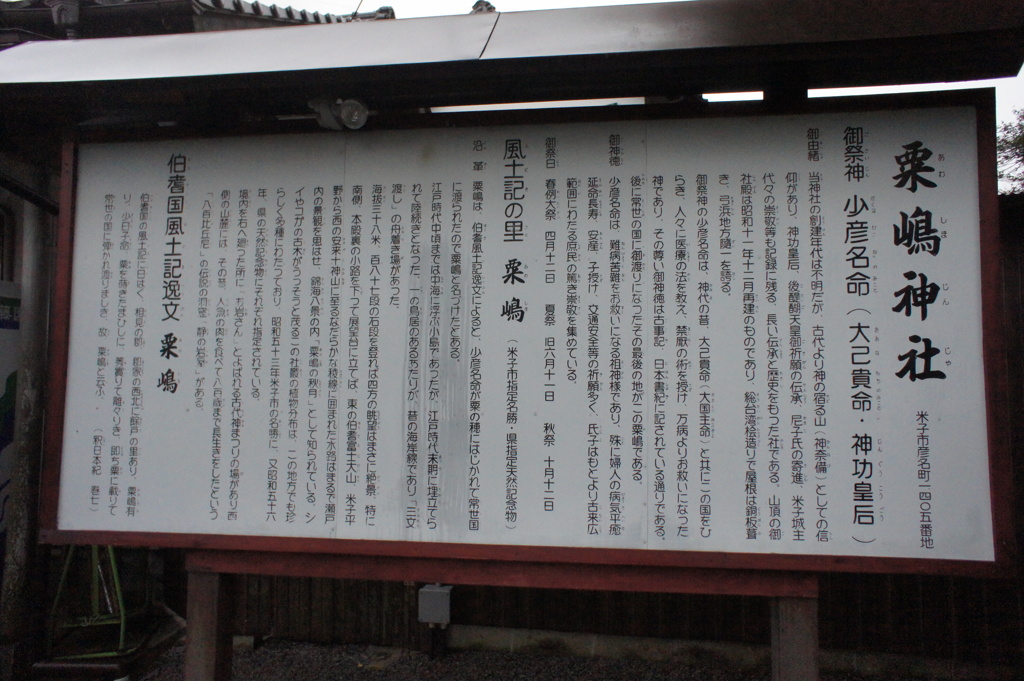 粟嶋神社
米子市彦名町一四〇五番地
御祭神 少彦名命(大己貴命・神功皇后)
御由緒 当神社の創建年代は不明だが、古代より神の宿る山(神奈備)としての信
仰があり、神功皇后、後醍醐天皇御祈願の伝承、尼子氏の寄進、米子城主
代々の崇敬等も記録に残る、長い伝承と歴史をもつた社である。山頂の御
社殿は昭和十一年十二月再建のものであり、総台湾桧造りで屋根は銅板葺
き、弓浜地方随一を誇る。
御祭神の少彦名命は、神代の昔、大己貴命(大国主命)と共にこの国をひ
らき、人々に医療の法を教え、禁厭の術を授け、万病よりお救いになった
神であり、その尊い御神徳は古事記、日本書紀に記されている通りである。
後に常世の国に御渡りになったその最後の地がこの粟嶋である。
御神徳 少彦名命は、難病苦難をお救いになる祖神様であり、殊に婦人の病気平癒
延命長寿、安産、子授け、交通安全等の祈願多く、氏子はもとより古来広
範囲にわたる庶民の篤き崇敬を集めている。
御祭日 春例大祭 四月十二日 夏祭 旧六月十一日 秋祭 十月十二日
風土記の里 粟嶋 (米子市指定名勝・県指定天然記念物)
沿革 粟嶋は、伯耆風土記逸文によると、少彦名命が粟の穂にはじかれて常世国
に渡られたので粟嶋と名づけたとある。
江戸時代中頃までは中海に浮ぶ小島であったが、江戸時代末期に埋立てら
れて陸続きとなった。一の鳥居のあるあたりが、昔の海岸線であり「三文
渡し」の舟着き場があった。
海抜三十八米、百八十七段の石段を登れば四方の眺望はまさに絶景、特に
南側、本殿裏の小路を下って展望台に立てば、東の伯耆富士大山、米子平
野から西の安来十神山に至るなだらかな稜線に囲まれた水路はまるで瀬戸
内の景観を思はせ、錦海八景の内「粟嶋の秋月」として知られている。シ
イやコガの古木がうっそうと茂るこの社叢の植物分布は、この地方でも珍
らしく多種にわたっており、昭和五十三年米子市の名勝に、又昭和五十六
年、県の天然記念物にそれぞれ指定されている。
境内を右へ廻った所に「お岩さん」とよばれる古代神まつりの場があり西
側の山麓には、その昔、人魚の肉を食べて八百歳まで長生きをしたという
「八百比丘尼」の伝説の洞窟「静の岩屋」がある。
伯耆国風土記逸文 粟嶋
伯耆国の風土記に曰はく、相見の郡、郡家の西北に餘戸の里あり、粟嶋有
り、少日子命、粟を蒔きたまひしに、莠實りて離々りき、即ち粟に載りて
常世の国に弾かれ渡りましき、故、粟嶋と云ふ、(釈日本紀 巻七)